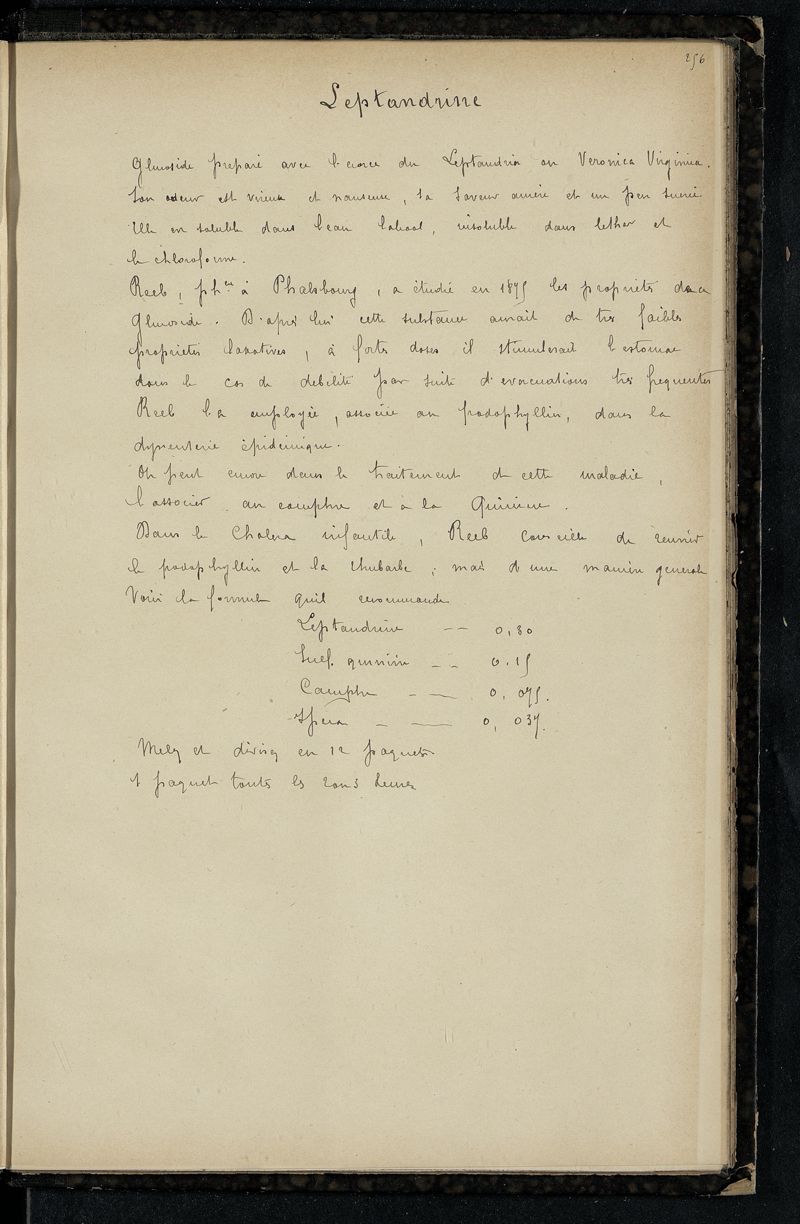 256
Leptandrine
Glucoside preparé avec l'ecorce du Leptandria ou Veronica Virginica.
Son odeur est vireuse et nauseuse, sa saveur amère et un peu sucrée
Elle en soluble dans l'eau l'alcool, insoluble dans l'ether et
le chloroforme.
Reeb, ph^en à Phalsbourg, a étudié en 1875 les proprietés de ce
Glucoside. D'après lui cette substance aurait de très faibles
proprietés laxatives, à fortes doses il stimulerait l'estomac
dans le cas de debilité par suite d'evacuations très frequentes
Reeb l'a employée, associée au podophyllin, dans la
dysenterie épidémique.
On peut encore dans le traitement de cette maladie,
l'associer au camphre et à la Quinine.
Dans le Cholera infantile, Reeb conseille de reunir
le podophyllin et la rhubarbe, mais d'une manière generale
Voici la formule qu'il recommande
Leptandrine -- 0,30
Sulf. quinine -- 0.15
Camphre -- 0,075.
Ipéca -- 0,037.
Melez et divisez en 12 paquets
1 paquet toutes les 2 ou 3 heures